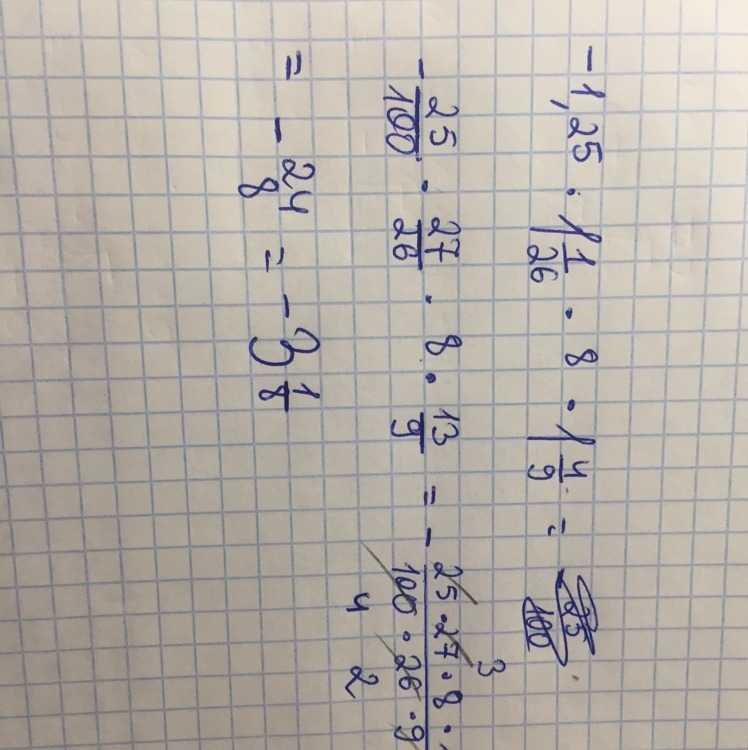 -1,25 · 1 1/26 · 8 · 1 4/9 =
- 25/100 · 27/26 · 8 · 13/9 = - 25·27·8·/100·26·9
3
4 2
= - 24/8 = -3 1/8